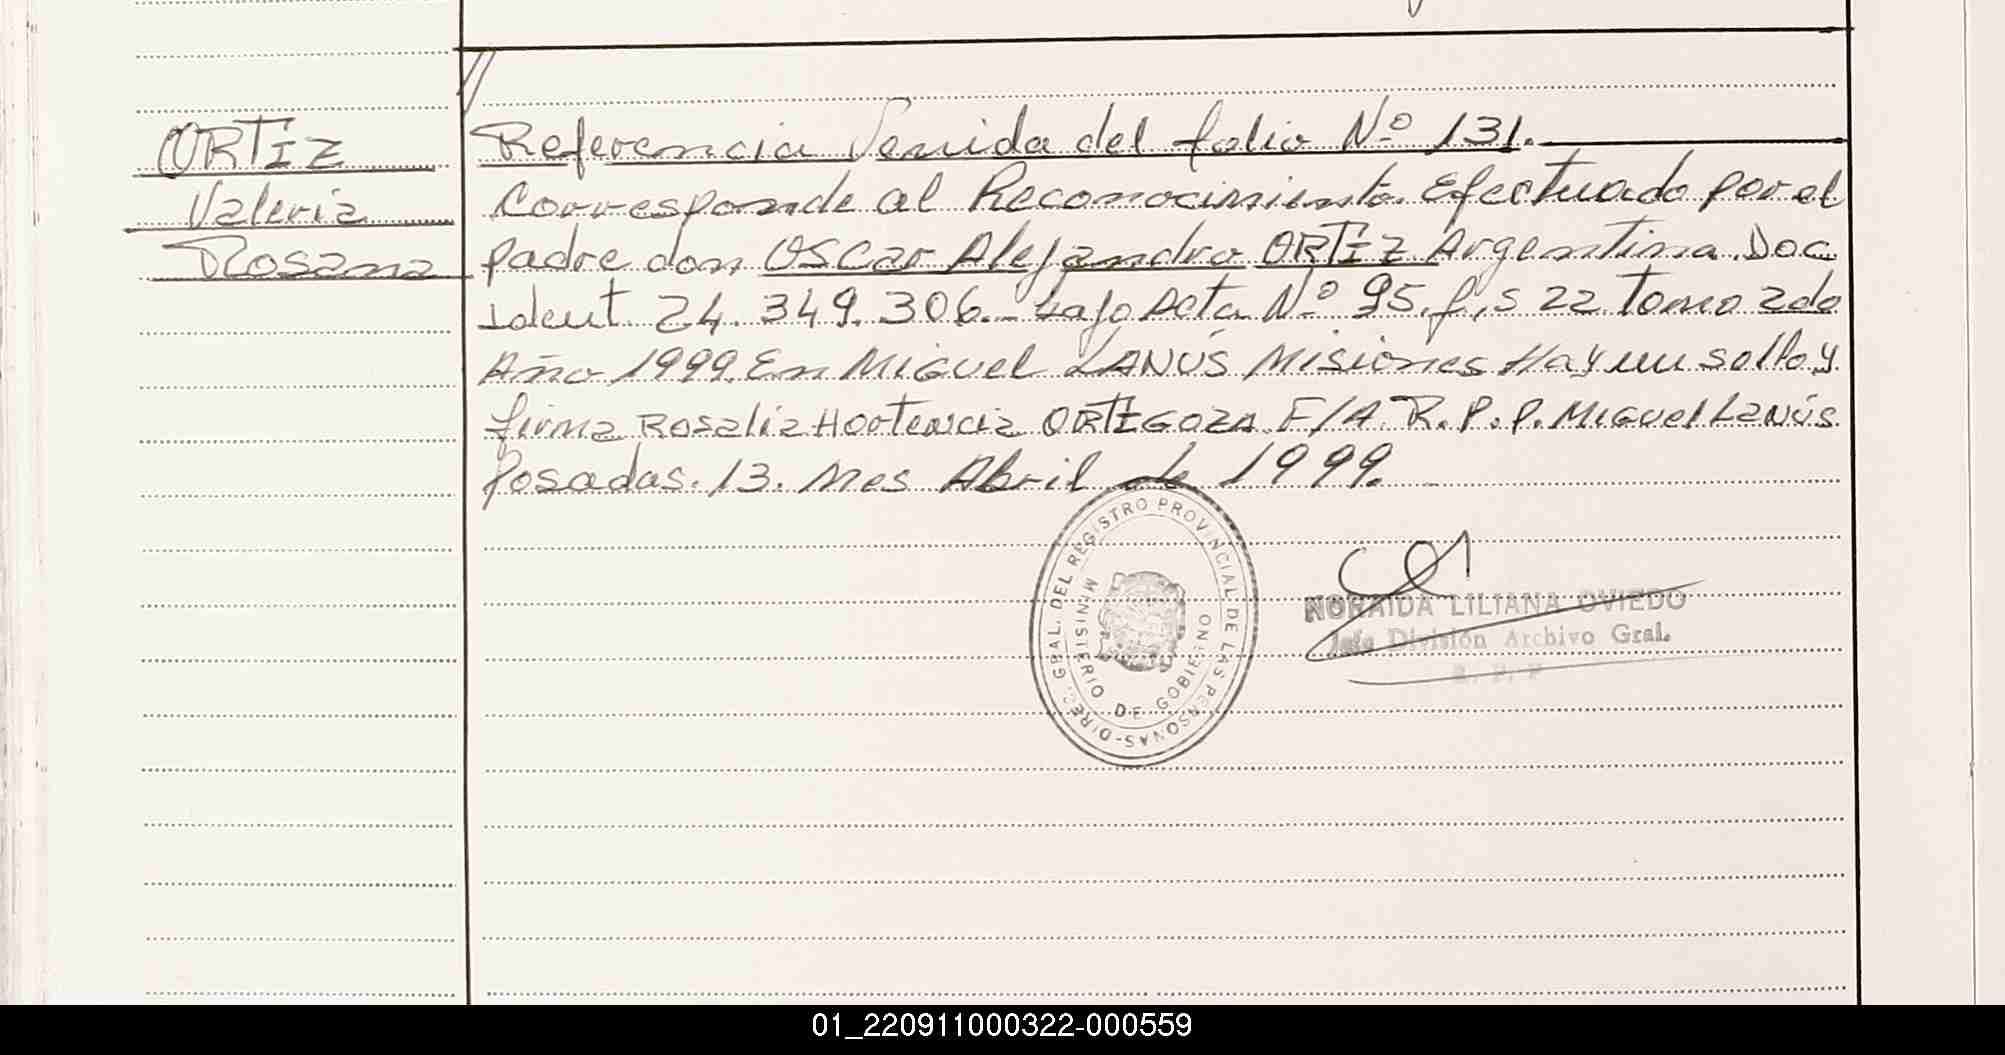 ORTIZ
Valeria
Rosana
Referencia Venida del folio Nº 131.
Corresponde al Reconocimiento Efectuado por el
padre don OSCar Alejandro ORTIZ Argentina Doc.
Ident. 24.349.306.- bajo Acta Nº 95. f,s 22 Tomo 2do
Año 1999. En MIGUel LANÚS MISIONES Hay un sello y
firma ROSalia HORTENCIA ORTEGOZA F/A. R.P.P. MIGUel LANÚS.
Posadas. 13. Mes Abril de 1999.
DIREC. GRAL. DEL REGISTRO PROVINCIAL DE LAS PERSONAS-
MINISTERIO DE GOBIERNO
NORAIDA LILIANA OVIEDO
Jefe División Archivo Gral.
R. P. P
01_220911000322-000559